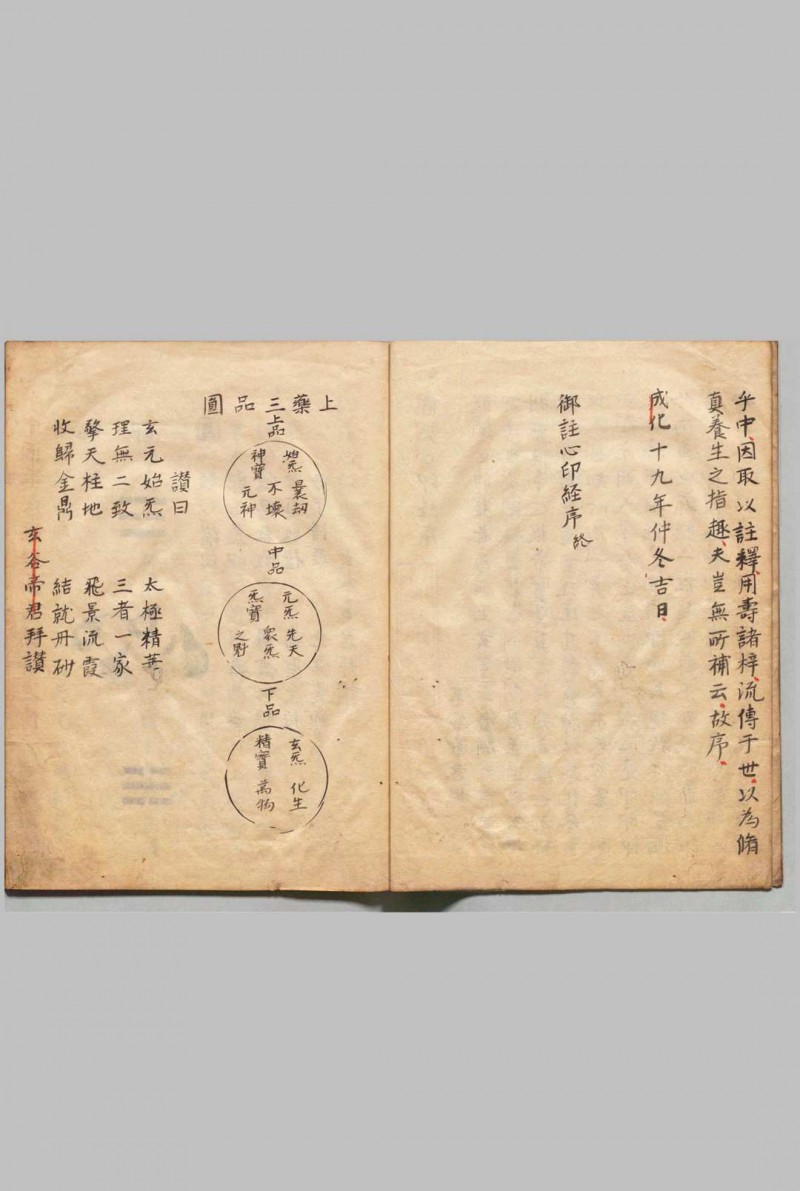 乎中因取以註釋用壽諸梓流傳于世以為脩
真養生之指趣夫豈無所補云故序
成化十九年仲冬吉日
御註心印経序終
上藥三品圖
上品
始炁
神寶
曩劫
不壞
元神
中品
元炁
炁寶
先天
衆炁
之
下品
玄炁
精寶
化生
萬物
讚曰
玄元始炁 太極精華
理無二致 三者一家
擎天柱地 飛景流霞
收歸金鼎 結就丹砂
玄谷帝君拜讚